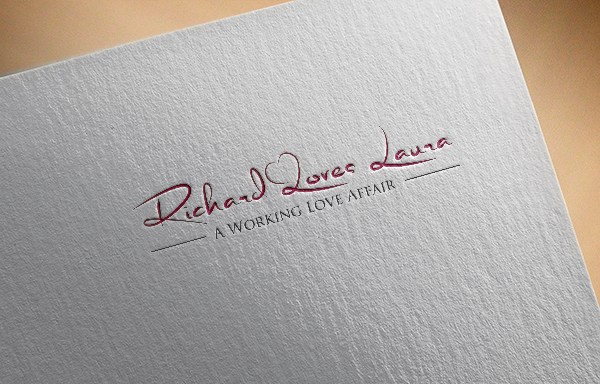 Richard Loves Laura
A Working Love Affair